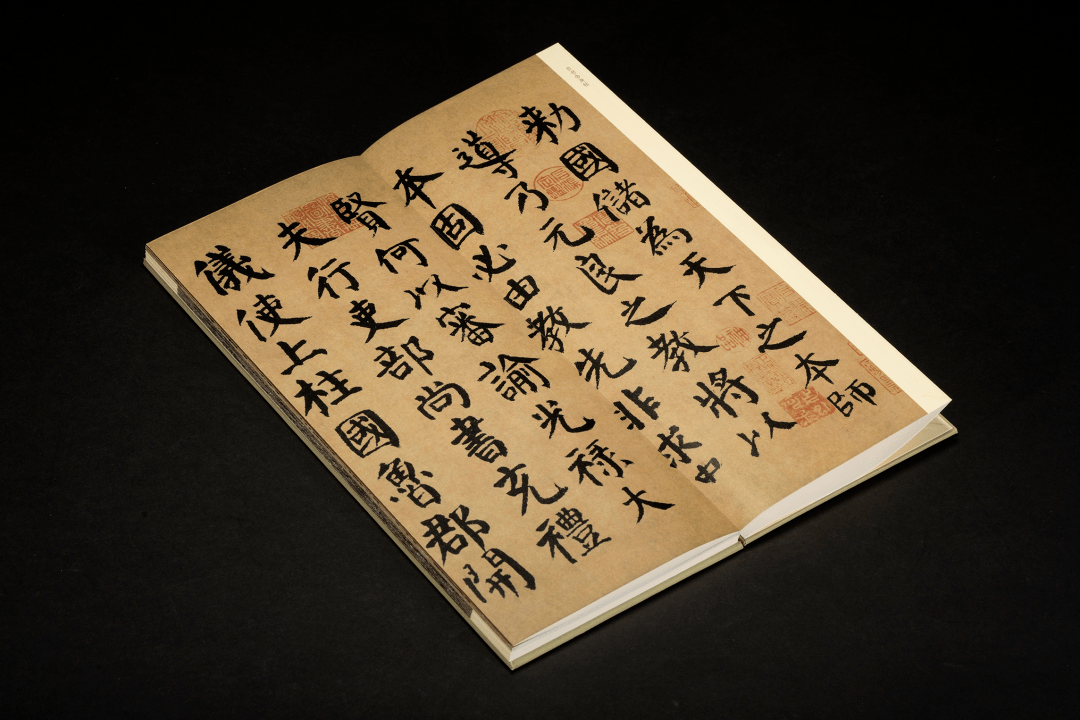 勑國儲為天下之本師
導乃元良之教將以
本固必由教先非求中
賢何以審諭光祿大
夫行吏部尚書充禮
儀使上柱國魯郡開